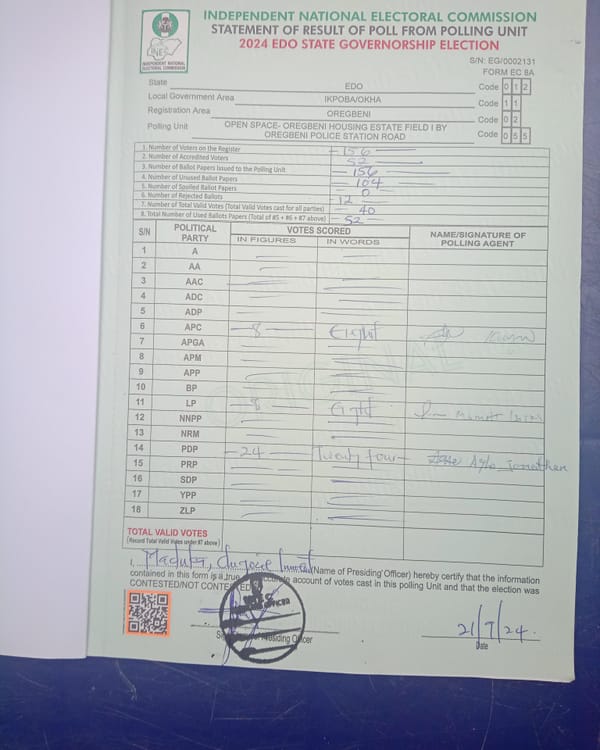 INDEPENDENT NATIONAL ELECTORAL COMMISSION
STATEMENT OF RESULT OF POLL FROM POLLING UNIT
2024 EDO STATE GOVERNORSHIP ELECTION
INEC
INDEPENDENT NATIONAL ELECTORAL COMMISSION
S/N: EG/0002131
FORM EC 8A
State EDO Code 0 1 2
Local Government Area IKPOBA/OKHA Code 1 1
Registration Area OREGBENI Code 0 2
Polling Unit OPEN SPACE- OREGBENI HOUSING ESTATE FIELD I BY OREGBENI POLICE STATION ROAD Code 0 5 5
1. Number of Voters on the Register 156
2. Number of Accredited Voters 52
3. Number of Ballot Papers Issued to the Polling Unit 156
4. Number of Unused Ballot Papers 104
5. Number of Spoiled Ballot Papers 0
6. Number of Rejected Ballots 12
7. Number of Total Valid Votes (Total Valid Votes cast for all parties) 40
8. Total Number of Used Ballots Papers (Total of #5 + #6 + #7 above) 52
S/N POLITICAL PARTY VOTES SCORED NAME/SIGNATURE OF POLLING AGENT
IN FIGURES IN WORDS
1 A
2 AA
3 AAC
4 ADC
5 ADP
6 APC 8 Eight
7 APGA
8 APM
9 APP
10 BP
11 LP 8 Eight
12 NNPP
13 NRM
14 PDP 24 Twenty four
15 PRP
16 SDP
17 YPP
18 ZLP
TOTAL VALID VOTES
(Record Total Valid Votes under #7 above)
I, (Name of Presiding Officer) hereby certify that the information
contained in this form is a true account of votes cast in this polling Unit and that the election was
CONTESTED/NOT CONTESTED
Presiding Officer
21/9/24
Date